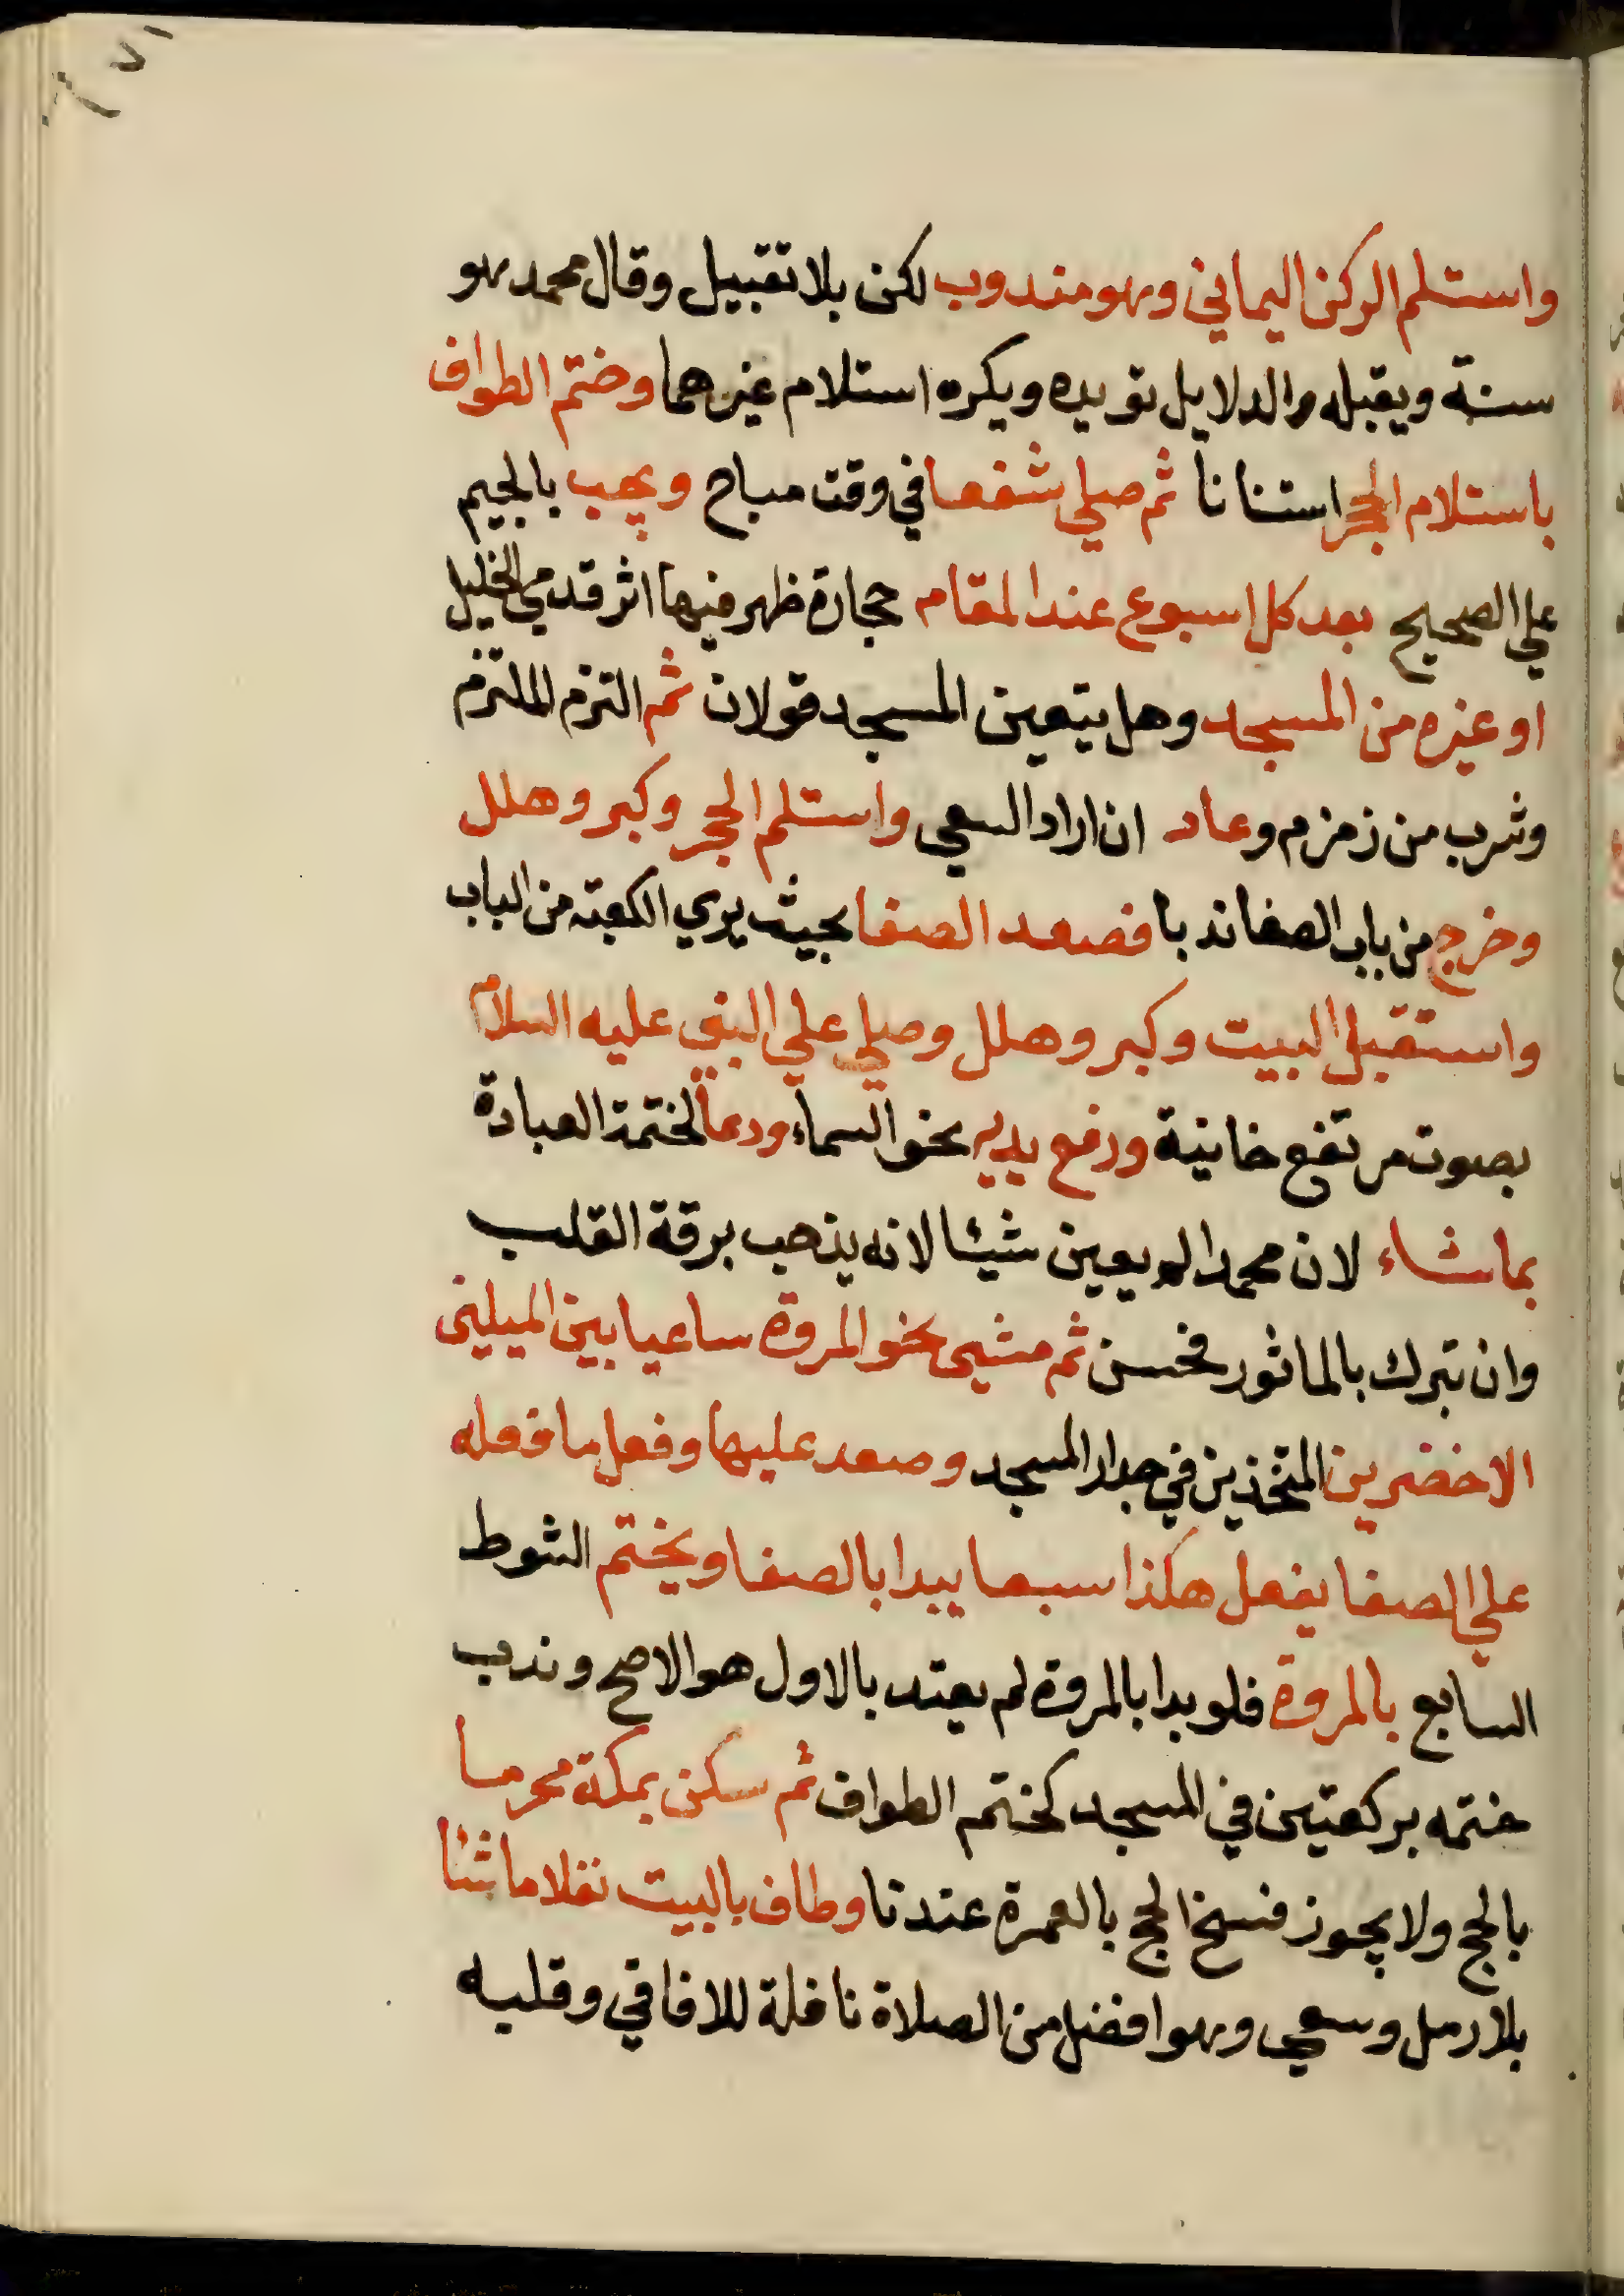 واستلم الركن اليماني وهو مندوب لكن بلا تقبيل وقال محمد هو
سنة ويقبله والدلايل تويده ويكره استلام غيرهما وختم الطواف
باستلام الحجر استنانا ثم صلي شفعا في وقت مباح ويجب بالجيم
علي الصحيح بعد كل اسبوع عند المقام حجارة ظهر فيها اثر قدمي الخليل
او غيره من المسجد وهل يتعين المسجد قولان ثم التزم الملتزم
وشرب من زمزم وعاد ان اراد السعي واستلم الحجر وكبر وهلل
وخرج من باب الصفا ندبا فصعد الصفا بحيث يري الكعبة من الباب
واستقبل البيت وكبر وهلل وصلي علي النبي عليه السلام
بصوت مرتفع خانية ورفع يديه نحو السماء ودعا لختمة العبادة
بما شاء لان محمدا لم يعين شيئا لانه يذهب برقة القلب
وان تبرك بالماثور فحسن ثم مشي نحو المروة ساعيا بين الميلين
الاخضرين المتخذين في جدار المسجد وصعد عليها وفعل ما فعله
علي الصفا يفعل هكذا سبعا يبدا بالصفا ويختم الشوط
السابع بالمروة فلو بدا بالمروة لم يعتد بالاول هو الاصح وندب
ختمه بركعتين في المسجد كختم الطواف ثم سكن بمكة محرما
بالحج ولا يجوز فسخ الحج بالعمرة عندنا وطاف بالبيت نفلا ماشئا
بلا رمل وسعي وهو افضل من الصلاة نافلة للافاقي وقلبه